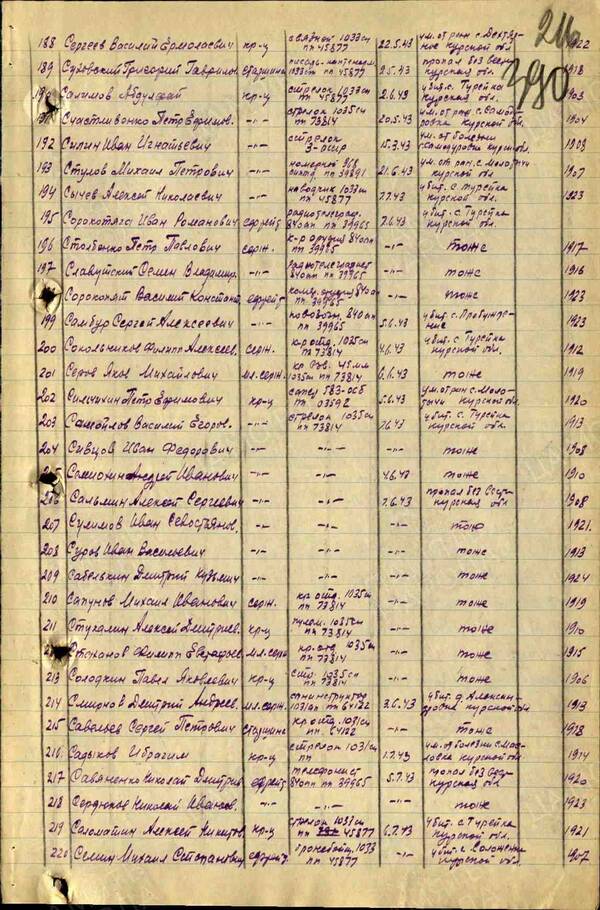 216
390
188 Сергеев Василий Ермолаевич кр-ц связной 1033сп пп 45877 22.5.43 ум. от ран с. Дехтярное Курской обл. 1922
189 Суховский Григорий Гаврилов. старшина 1033сп пп 45877 9.5.43 пропал без вести Курская обл. 1918
190 Салимов Абдулфай кр-ц стрелок 1033сп пп 45877 2.6.43 убит. с. Турейка Курской обл. 1903
191 Счастливенко Петр Ефимов. -"- стрелок 1035сп пп 73814 20.5.43 ум. от ран. Курской обл. 1904
192 Силин Иван Игнатьевич -"- стрелок 15.3.43 ум. от болезни Курской обл. 1903
193 Стулов Михаил Петрович -"- номерной пп 39891 21.6.43 ум. от ран. с. Молотычи Курской обл. 1907
194 Сычев Алексей Николаевич -"- наводчик 1033сп пп 45877 7.7.43 убит. с. Турейка Курской обл. 1923
195 Сорокотяга Иван Романович ефрейт радиотелеграф. 840ап пп 39965 7.6.43 убит. с. Турейка Курской обл.
196 Столбенко Петр Павлович серж. к-р орудия 840ап пп 39965 -"- тоже 1917
197 Славутский Семен Владимир. -"- радиотелеграфист 840ап пп 39965 -"- тоже 1916
Сорокопят Василий Констант. ефрейт 840ап пп 39965 -"- тоже 1923
199 Самбур Сергей Алексеевич -"- 840ап пп 39965 5.6.43 убит. с. 1923
200 Сокольников Филипп Алексеев. серж. кр отд. 1035сп пп 73814 4.6.43 убит. с. Турейка Курской обл. 1912
201 Серов Яков Михайлович мл. серж. 45мм 1035сп пп 73814 6.6.43 тоже 1919
202 Силичихин Петр Ефимович кр-ц сапер 583-осб пп 03592 5.6.43 ум. от ран с. Молотычи Курской обл 1920
203 Самойлов Василий Егоров. -"- стрелок 1035сп пп 73814 7.6.43 убит. с. Турейка Курской обл. 1913
204 Сивцов Иван Федорович -"- -"- -"- тоже 1908
205 Семиохин Андрей Иванович -"- -"- 4.6.43 тоже 1910
206 Сальмин Алексей Сергеевич -"- -"- 7.6.43 пропал без вести Курская обл 1908
207 Сулимов Иван Севостьянов. -"- -"- -"- тоже 1921.
208 Суров Иван Васильевич -"- -"- -"- тоже 1913
209 Сабелькин Дмитрий Кузьмич -"- -"- -"- тоже 1924
210 Сапунов Михаил Иванович серж. кр отд. 1035сп пп 73814 -"- тоже 1919
211 Стукалин Алексей Дмитриев. кр-ц пулем. 1035сп пп 73814 -"- тоже 1910
Стаханов Филипп мл. серж кр. отд 1035сп пп 73814 -"- тоже 1915
213 Солодкин Павел Яковлевич кр-ц стр. 1035сп пп 73814 -"- тоже 1906
214 Смирнов Дмитрий Андреев. мл. серж. санинструктор 1031сп пп 64122 3.6.43 убит. д. Александровка Курской обл 1913
215 Савельев Сергей Петрович старшина кр отд. 1031сп пп. 64122 -"- тоже 1918
216 Садыков Ибрагим кр-ц стрелок 1031сп пп 1.7.43 ум. от болезни Курской обл. 1914
217 Савяненко Николай Дмитрие ефрейт телефонист 840ап пп 39965 5.7.43 пропал без вести Курская обл. 1920
218 Сердюков Николай Иванов. -"- -"- -"- тоже 1923
219 Соломатин Алексей Никитов. кр-ц стрелок 1033сп пп 45877 6.7.43 убит. с. Турейка Курской обл. 1921
220 Семин Михаил Степанович ефрейт. бронебойщ. 1033 пп 45877 -"- убит. с. Соложенки Курской обл. 1907